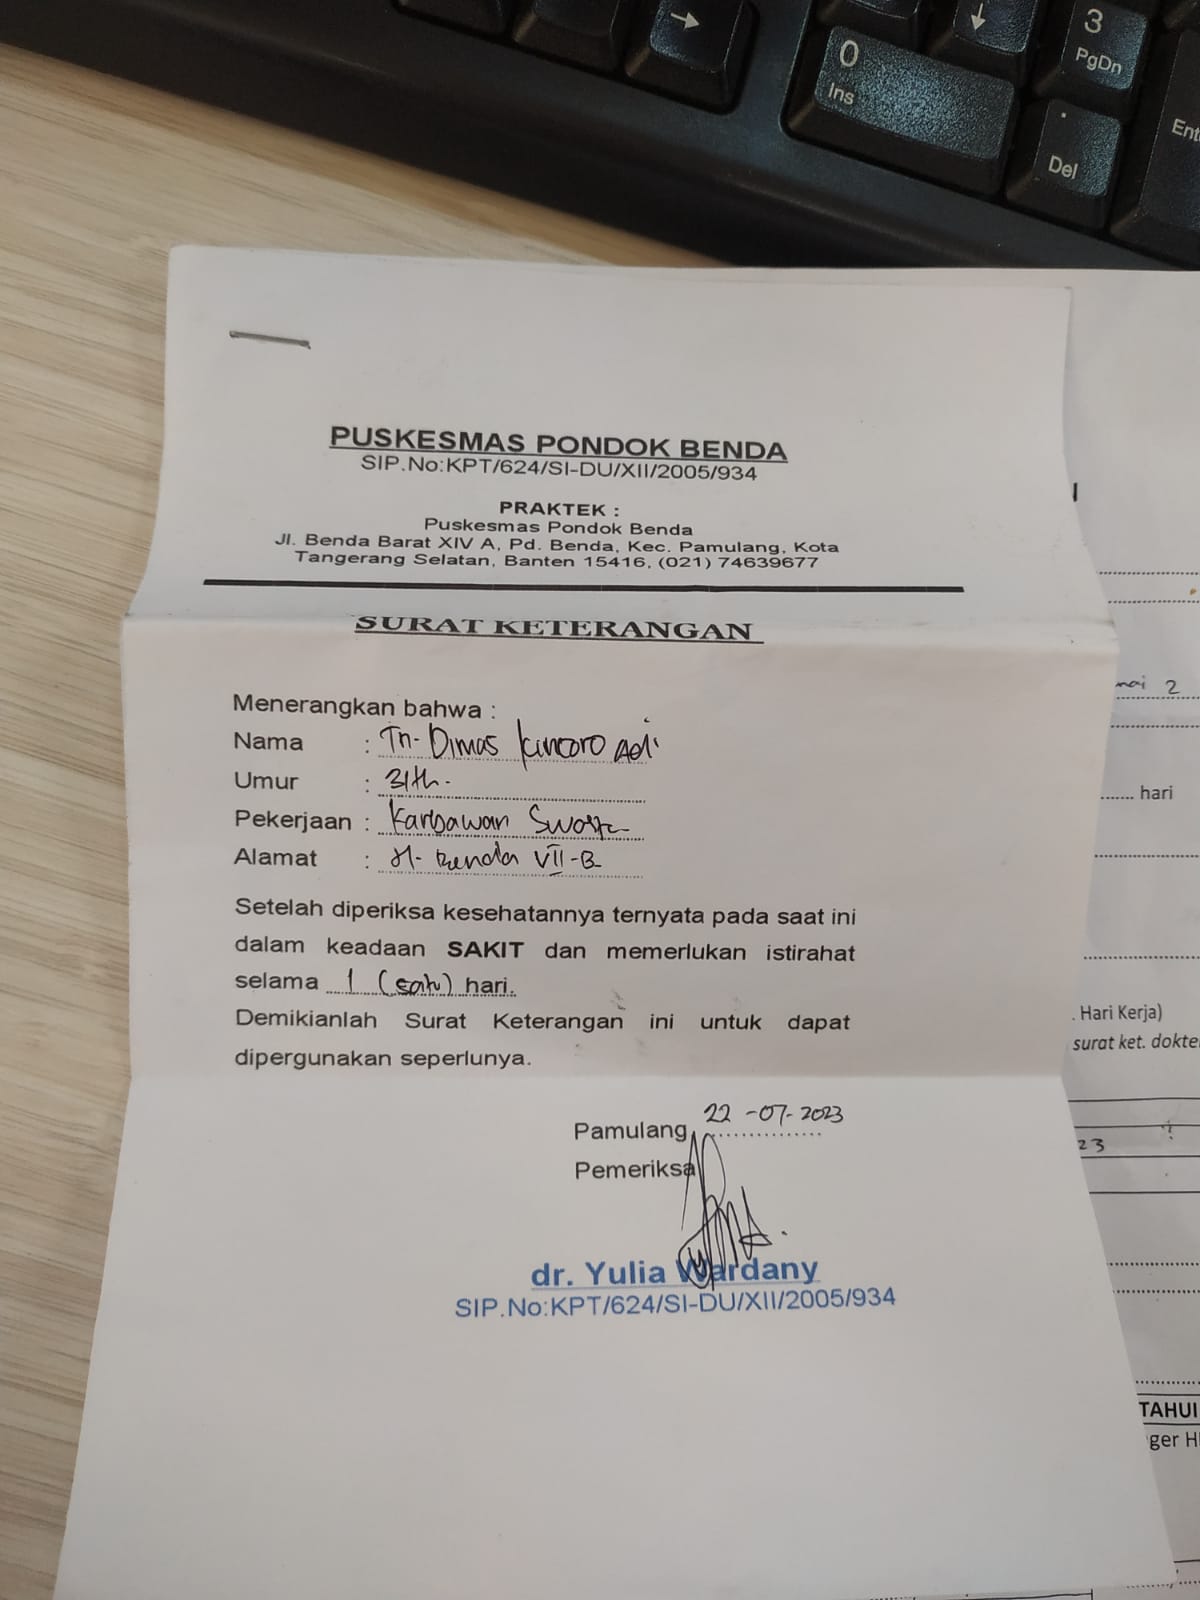 →
↓
3
PgDn
0
Ins
.
Del
Ent
PUSKESMAS PONDOK BENDA
SIP.No:KPT/624/SI-DU/XII/2005/934
PRAKTEK :
Puskesmas Pondok Benda
Jl. Benda Barat XIV A, Pd. Benda, Kec. Pamulang, Kota
Tangerang Selatan, Banten 15416, (021) 74639677
SURAT KETERANGAN
Menerangkan bahwa :
Nama : Tn. Dimas Kuncoro Adi
Umur : 31th.
Pekerjaan : Karyawan Swasta
Alamat : Jl. Benda VII-B
Setelah diperiksa kesehatannya ternyata pada saat ini
dalam keadaan SAKIT dan memerlukan istirahat
selama 1 (satu) hari.
Demikianlah Surat Keterangan ini untuk dapat
dipergunakan seperlunya.
Pamulang, 22-07-2023
Pemeriksa
dr. Yulia Wardany
SIP.No:KPT/624/SI-DU/XII/2005/934
mai 2
hari
. Hari Kerja)
surat ket. dokte
23
TAHUI
ger H